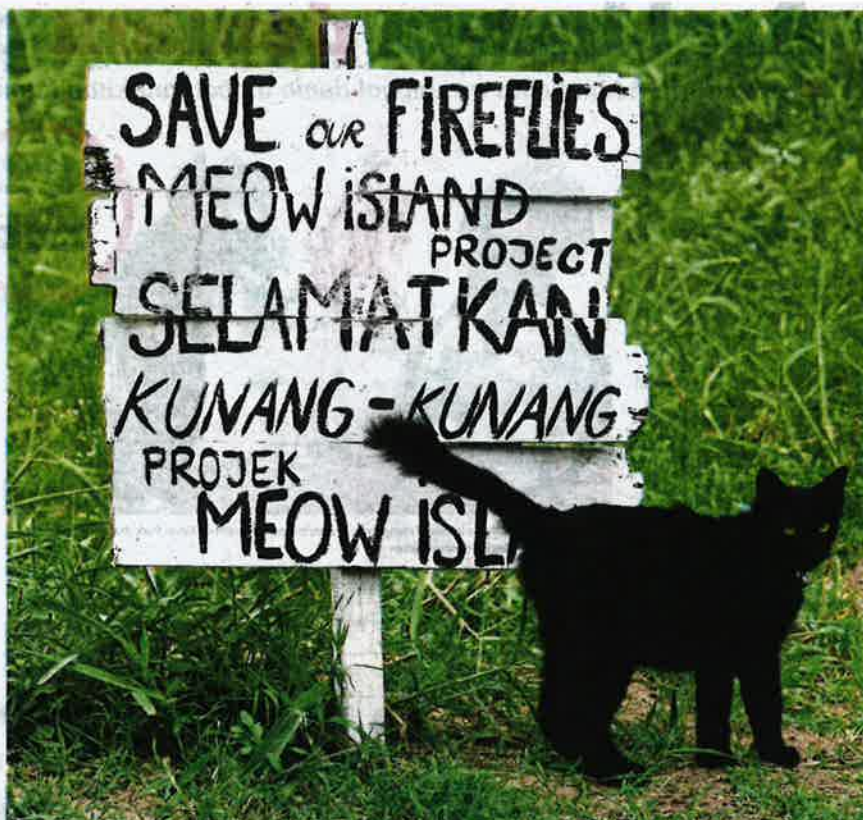 SAVE OUR FIREFLIES
MEOW ISLAND
PROJECT
SELAMATKAN
KUNANG-KUNANG
PROJEK
MEOW ISL